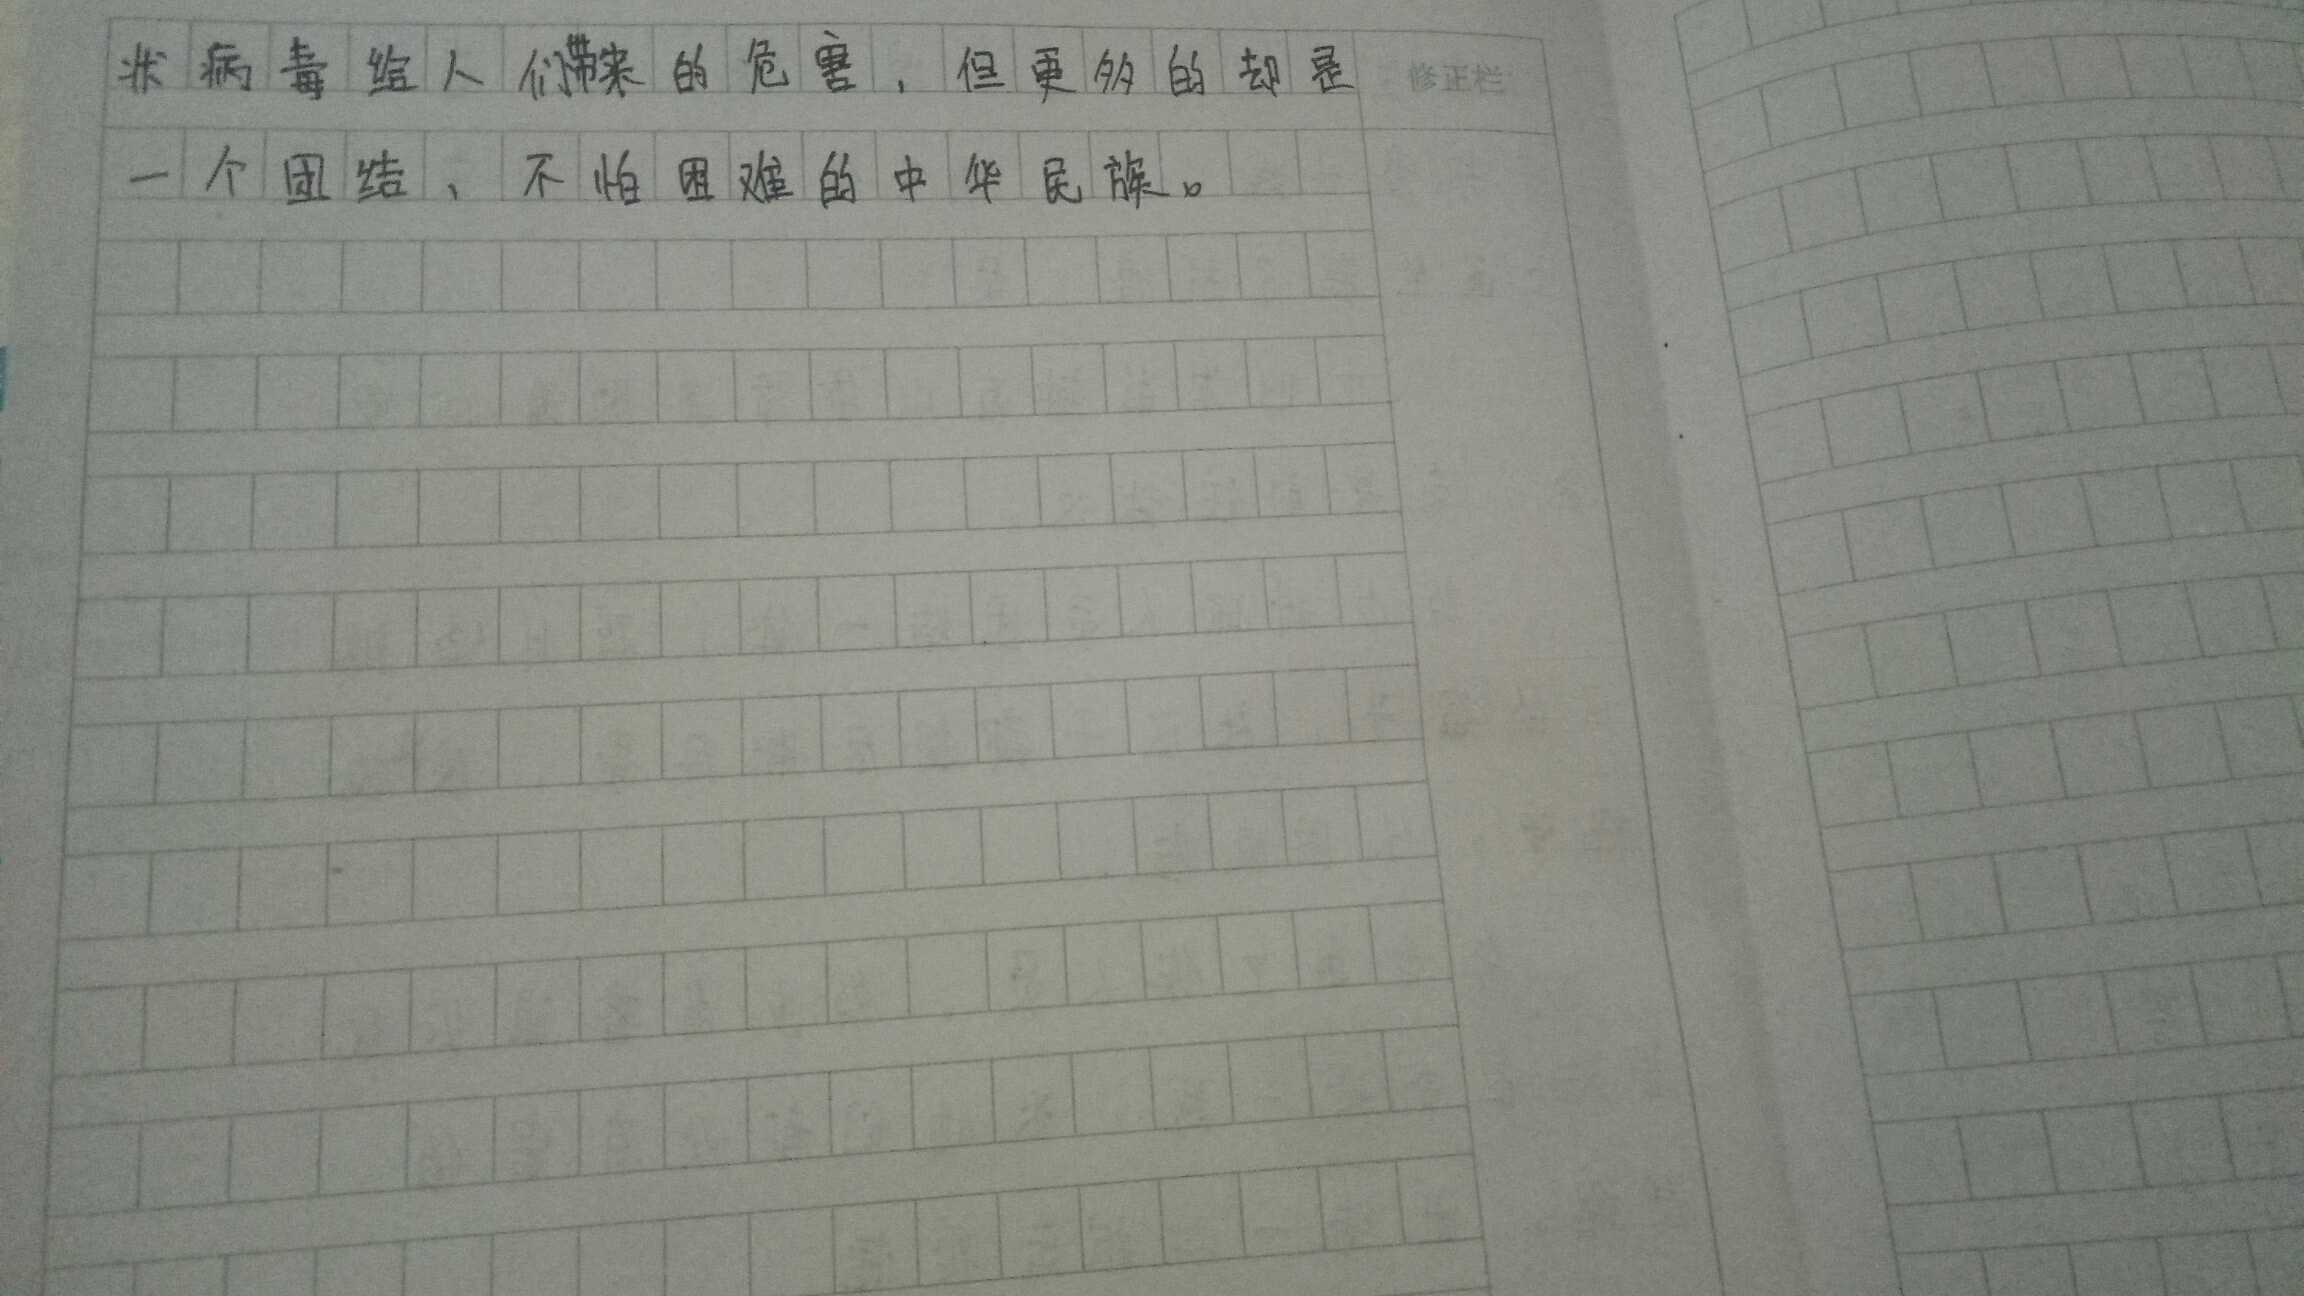 状病毒给人们带来的危害，但更多的却是
修正栏
一个团结、不怕困难的中华民族。